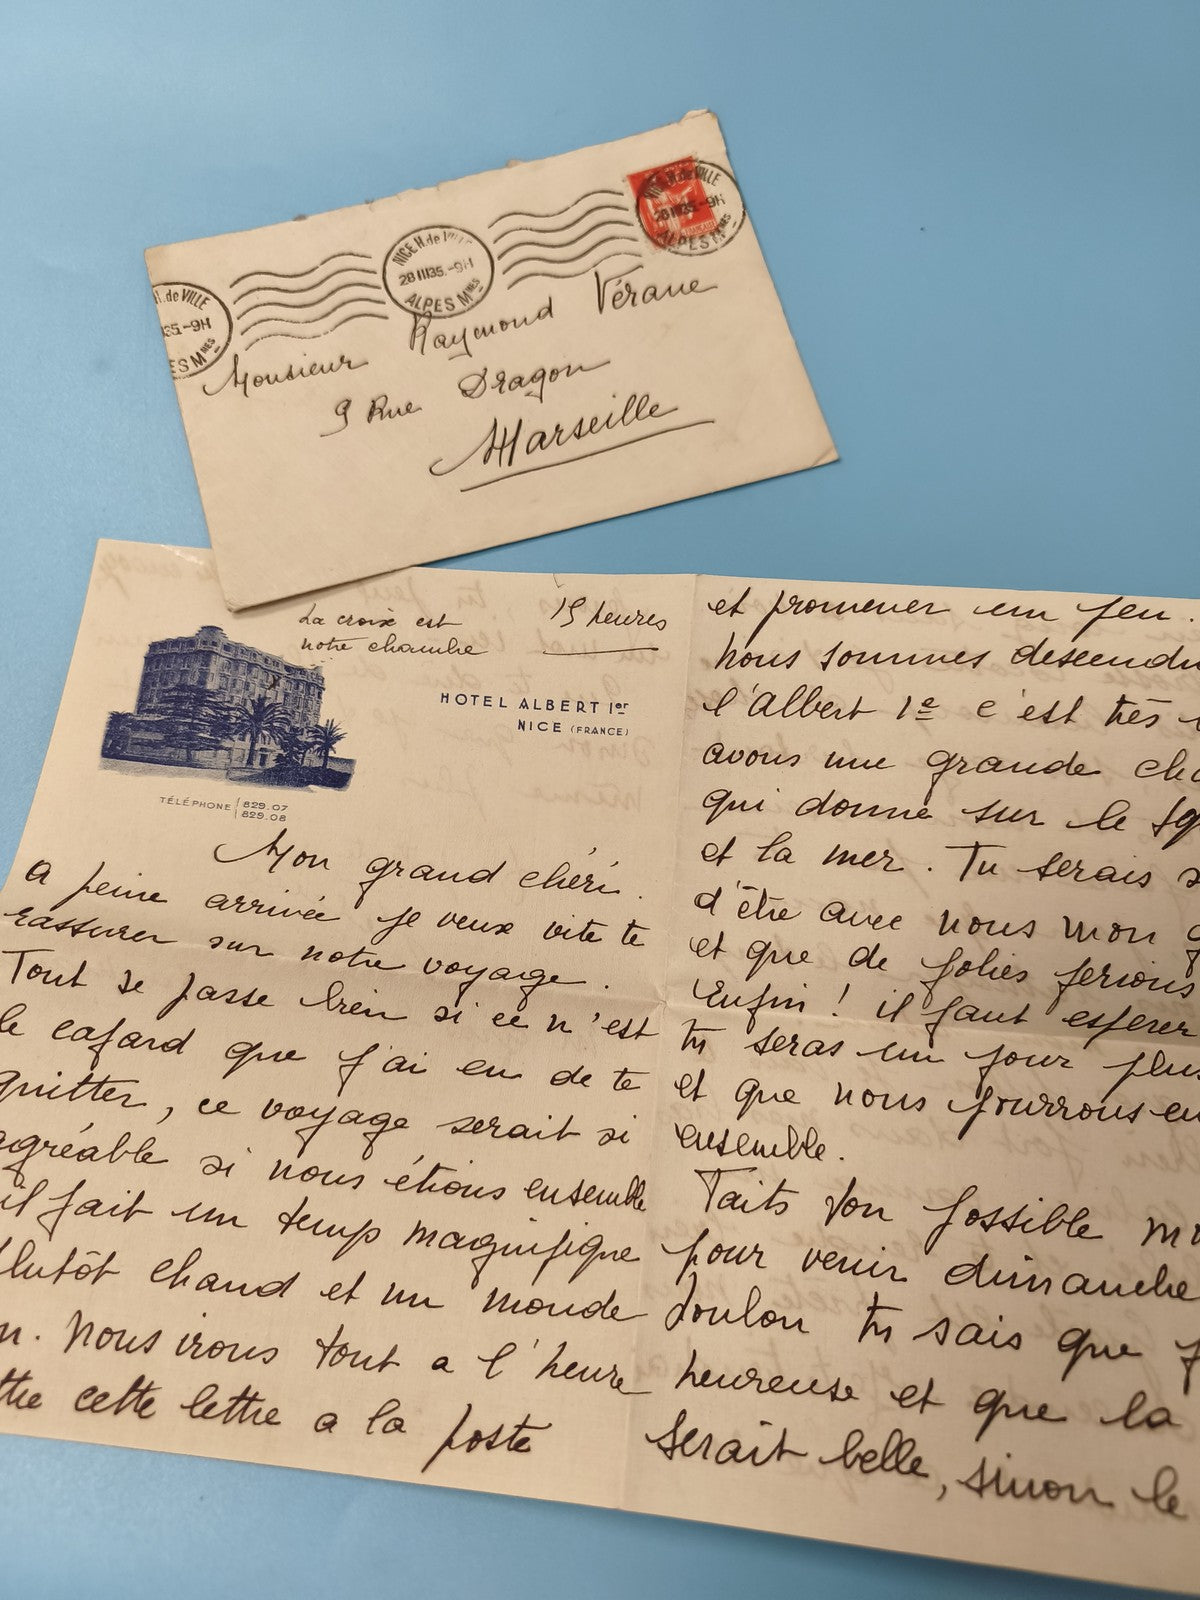 NICE H. de VILLE
28 III 35.-9H
ALPES Mmes
H. de VILLE
35.-9H
ES Mmes
NICE H. de VILLE
28 III 35.-9H
ALPES Mmes
Monsieur Raymond Vérane
9 Rue Dragon
Marseille
La croix est
notre chambre
15 heures
HOTEL ALBERT Ier
NICE (FRANCE)
TÉLÉPHONE 829.07
829.08
Mon grand chéri.
a peine arrivée je veux vite te
rassurer sur notre voyage.
Tout se passe bien si ce n'est
le cafard que j'ai eu de te
quitter, ce voyage serait si
agréable si nous étions ensemble
il fait un temps magnifique
plutôt chaud et un monde
Nous irons tout a l'heure
cette lettre a la poste
et promener un peu.
Nous sommes descendu
l'Albert 1e c'est très
avons une grande
qui donne sur le
et la mer. Tu serais
d'être avec nous mon
et que de folies ferions
Enfin! il faut esperer
tu seras un jour plus
et que nous pourrons
ensemble.
Faits ton possible
pour venir dimanche
Toulon tu sais que
heureuse et que la
serait belle, sinon le